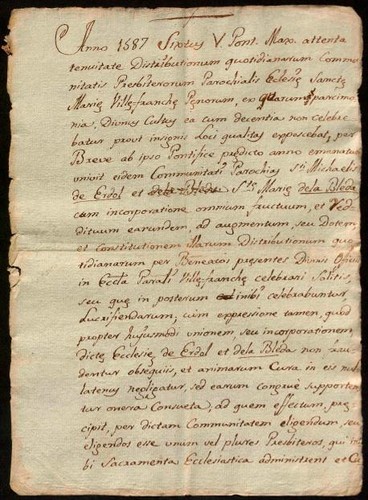 Anno 1587 Sixtus V. Pont. Max. attenta
tenuitate Distributionum quotidianarum Commu
nitatis Presbiterorum Parochialis Eclesię Sanctę
Marię Villę-franchę Penorum, ex quarum parcimo
nia, Divinus Cultus ea cum decentia non celebra
batur, prout insignis Loci qualitas exposcebat, per
Breve ab ipso Pontifice prędicto anno emanatus
univit eidem Communitati Parochias Sti Michaelis
de Erdol et dela Bleda Stę Marię dela Bleda
cum incorporatione omnium fructuum, et Red
dituum earundem, ad augmentum, seu Dotem,
et Constitutionem illarum Distributionum quo
tidianarum per Beneatos presentes Divinis Officiis
in Eccla Parialị Villę-franchę celebrari Solitis,
seu quę in posterum inibi celebrabuntur
Lucrifiendarum; cum expressione tamen, quod
propter hujusmodi unionem, seu incorporationem
dictę Ecclesię de Erdol et dela Bleda non frau
dentur obsequiis, et animarum Cura in eis nul
latenus negligatur, sed earum congruè supporten
tur onera Consueta, ad quem effectum, pre
cipit, per dictam Communitatem eligendum seu
eligendos esse unum vel plures Presbiteros, qui i
bi Sacramenta Ecclesiastica administrent et Cu